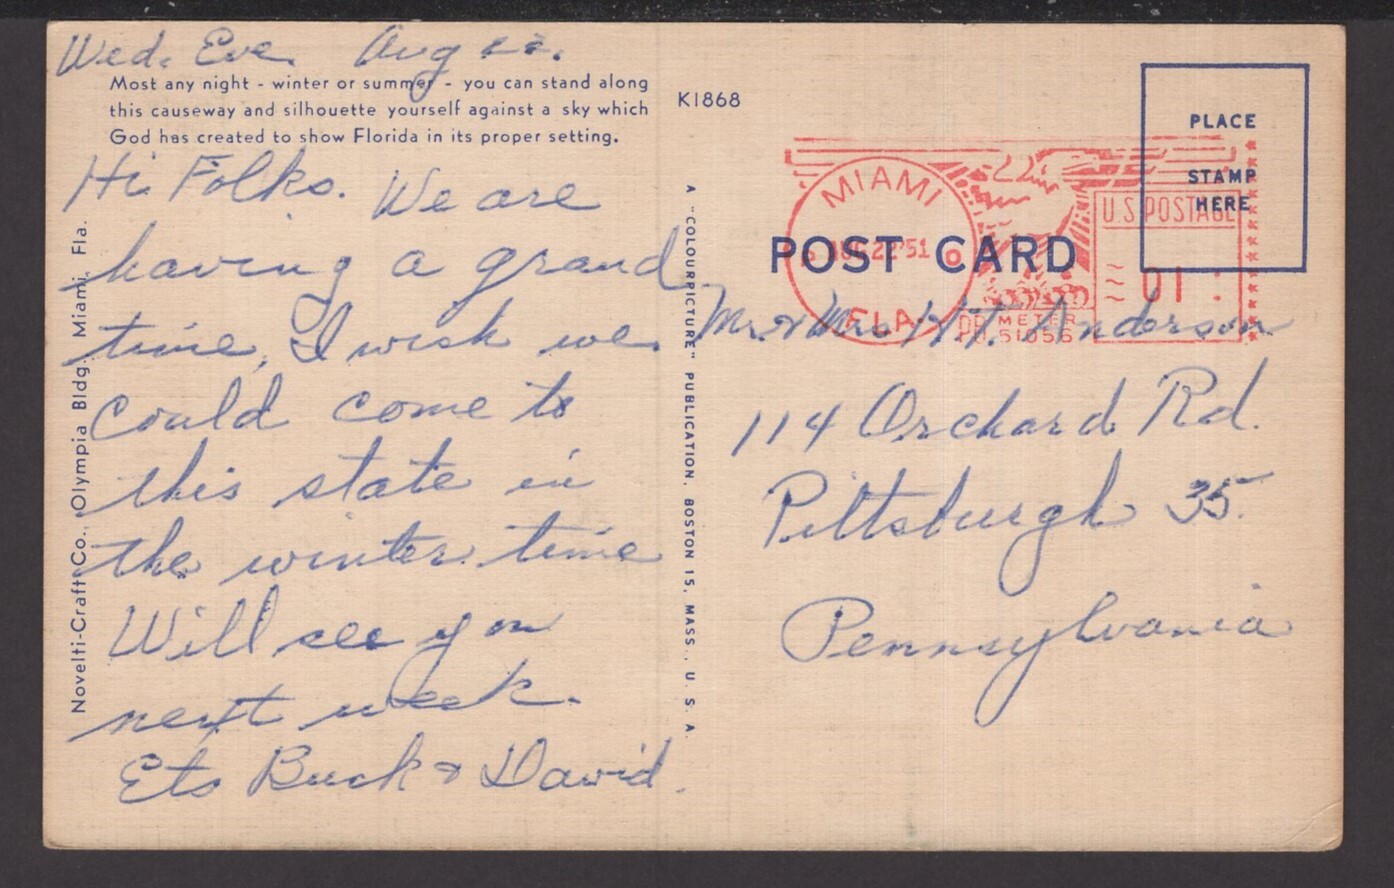 Wed. Eve. Aug 22.
Most any night - winter or summer - you can stand along
this causeway and silhouette yourself against a sky which
God has created to show Florida in its proper setting.
Hi Folks. We are
having a grand
time, I wish we
could come to
this state in
the winter time
Will see you
next week.
Ets Buck & David.
Novelti-Craft Co., Olympia Bldg. Miami, Fla.
A "COLOURPICTURE" PUBLICATION, BOSTON 15, MASS., U. S. A.
K1868
PLACE
STAMP
HERE
MIAMI
AUG 22 '51
FLA.
U.S. POSTAGE
01
METER
51056
POST CARD
Mr. & Mrs H.T. Anderson
114 Orchard Rd.
Pittsburgh 35.
Pennsylvania